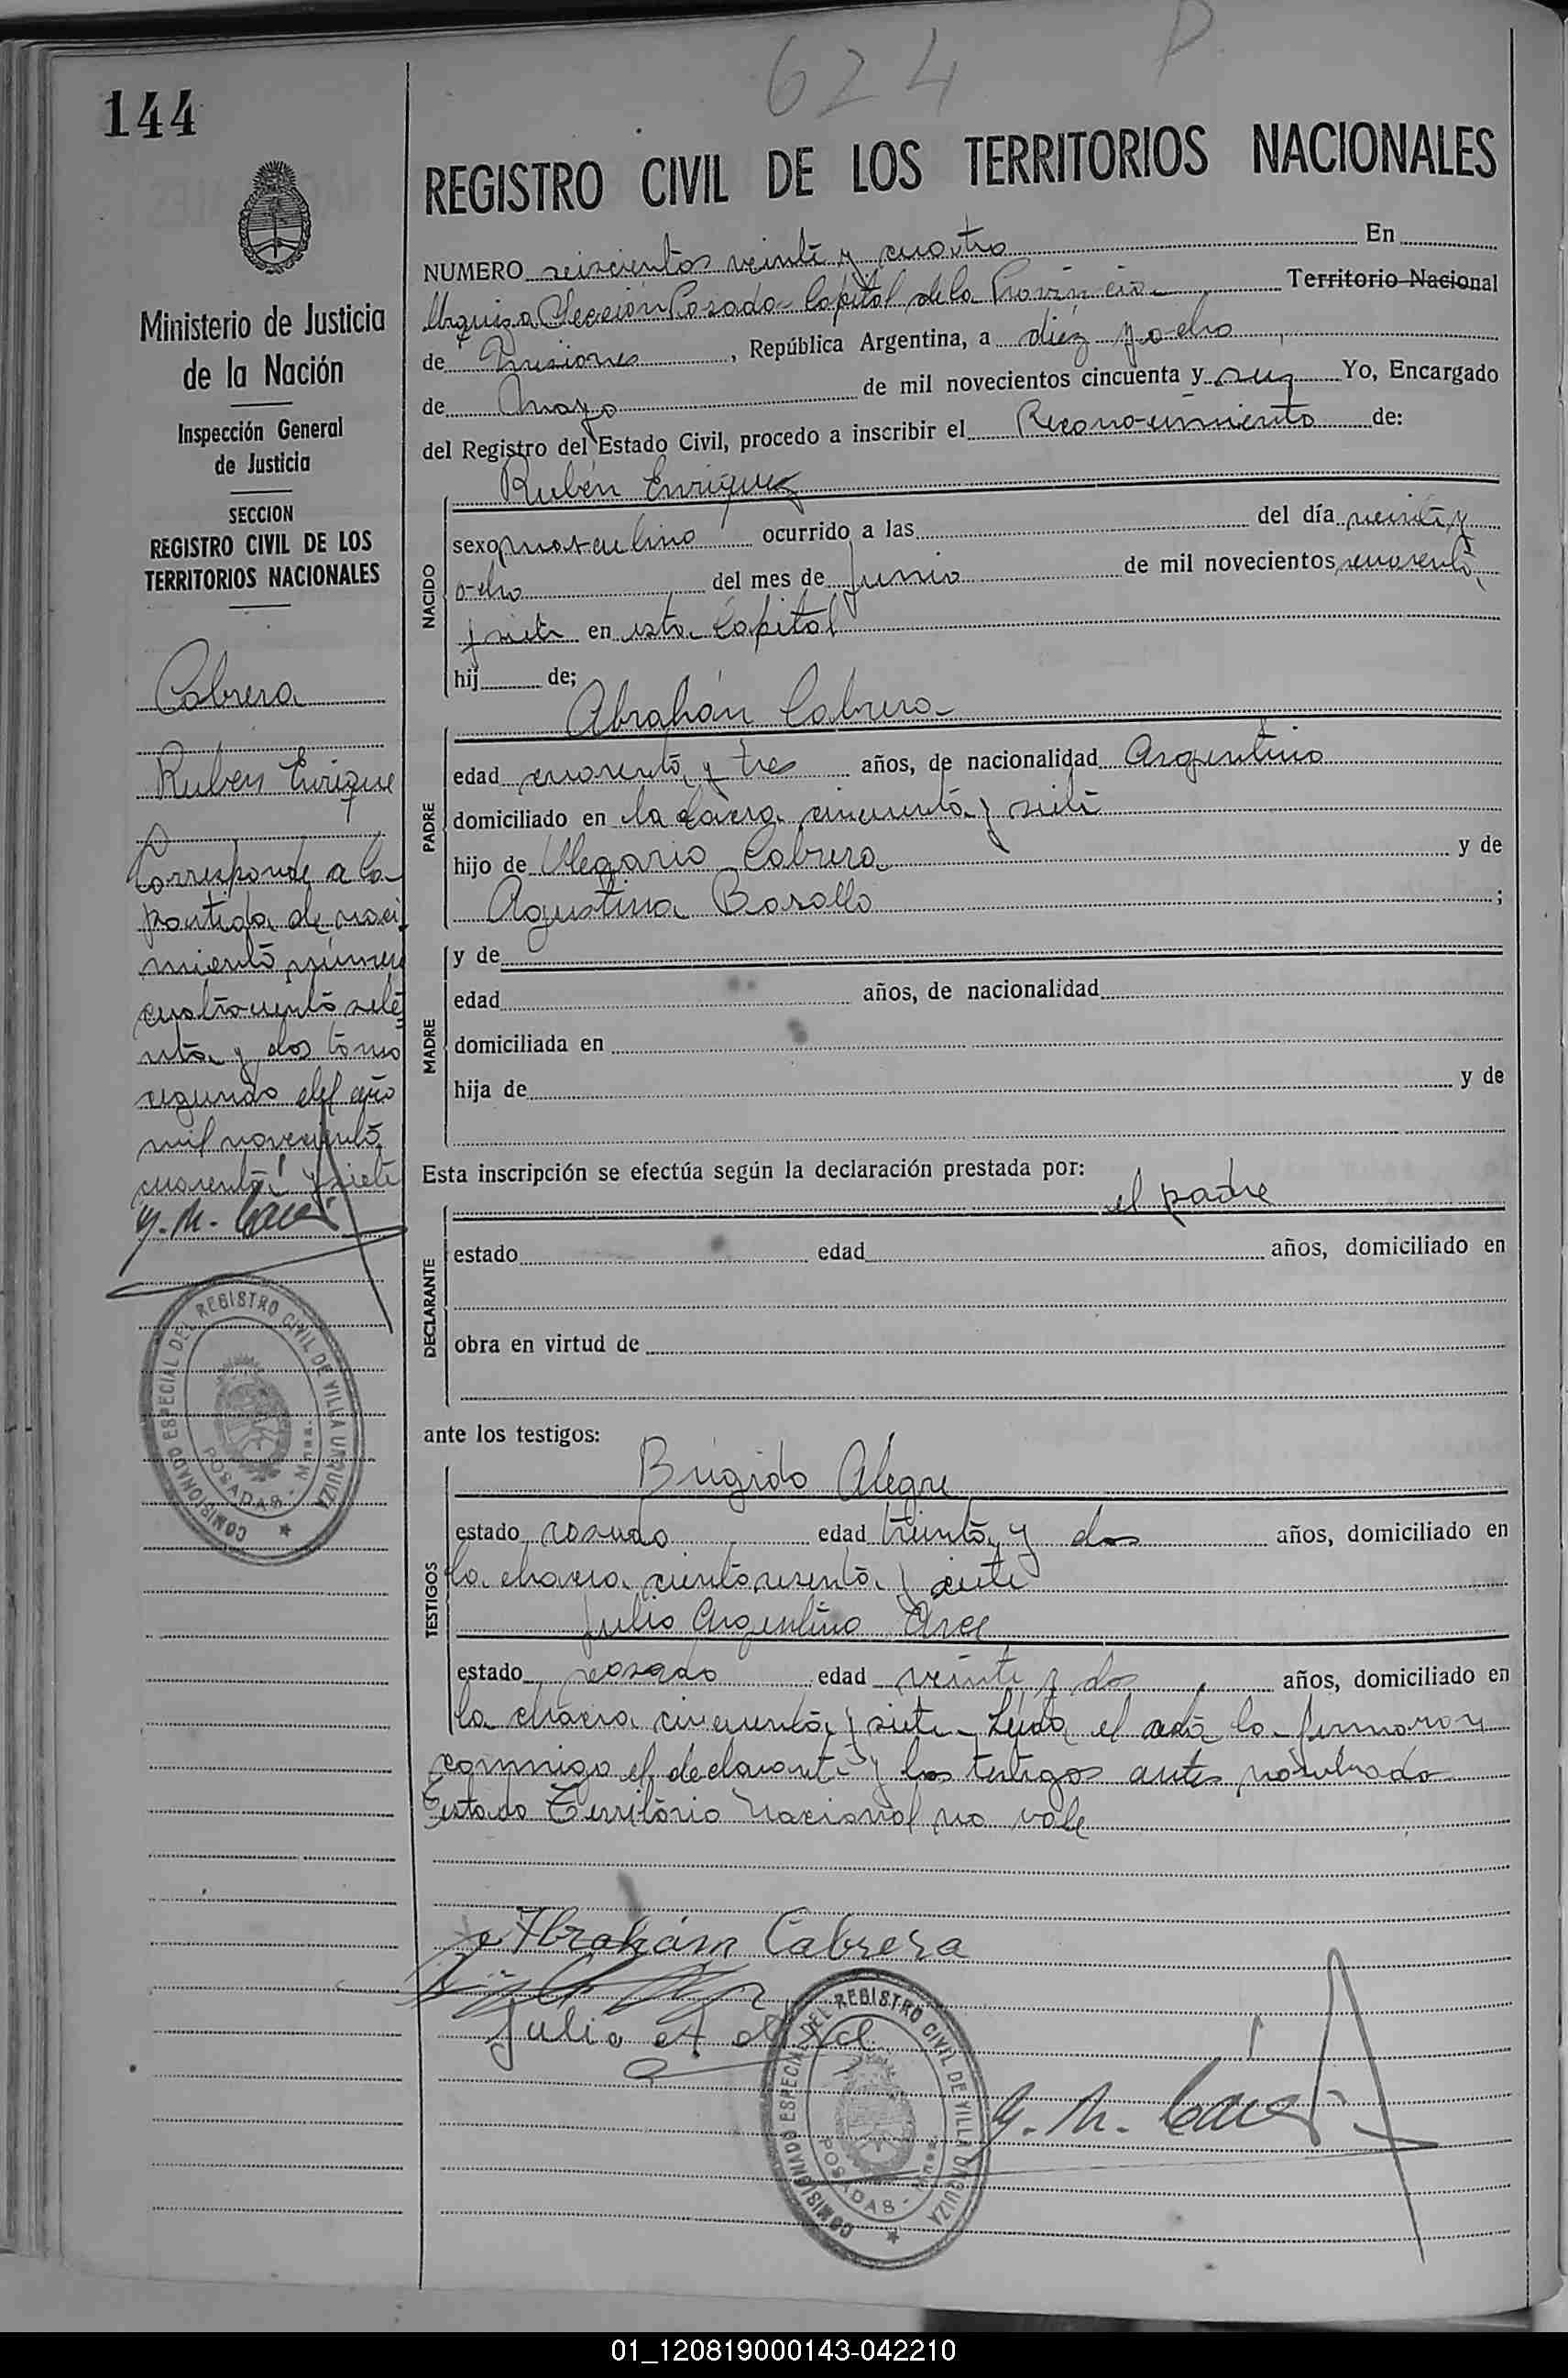 624 P
144
REGISTRO CIVIL DE LOS TERRITORIOS NACIONALES
Ministerio de Justicia
de la Nación
Inspección General
de Justicia
SECCION
REGISTRO CIVIL DE LOS
TERRITORIOS NACIONALES
Cabrera
Ruben Enrique
Corresponde a la
partida de naci
miento número
cuatrocientos sete
nta y dos tomo
segundo del año
mil novecientos
cuarenta y siete
COMISIONADO ESPECIAL DEL REGISTRO CIVIL DE VILLA URQUIZA
POSADAS - Mnes.
NUMERO seiscientos veinte y cuatro En
Urquiza Sección Posadas Capital de la Provincia Territorio Nacional
de Misiones, República Argentina, a diez y ocho
de Mayo de mil novecientos cincuenta y seis Yo, Encargado
del Registro del Estado Civil, procedo a inscribir el Reconocimiento de:
NACIDO
Rubén Enrique
sexo masculino ocurrido a las del día veinte y
ocho del mes de Junio de mil novecientos cuarenta
y siete en esta Capital
hij de;
PADRE
Abrahán Cabrera
edad cuarenta y tres años, de nacionalidad Argentino
domiciliado en la chacra cincuenta y siete
hijo de Olegario Cabrera y de
Agustina ;
MADRE
y de
edad años, de nacionalidad
domiciliada en
hija de y de
Esta inscripción se efectúa según la declaración prestada por:
DECLARANTE
el padre
estado edad años, domiciliado en
obra en virtud de
ante los testigos:
TESTIGOS
Brigido Alegre
estado casado edad treinta y dos años, domiciliado en
la chacra ciento sesenta y siete
Julio Argentino
estado casado edad veinte y dos años, domiciliado en
la chacra cincuenta y siete Leida el acta la firmaron
conmigo el declarante y los testigos antes nombrado
Testado Territorio Nacional no vale
Abrahám Cabrera
Julio A
COMISIONADO ESPECIAL DEL REGISTRO CIVIL DE VILLA URQUIZA
POSADAS - Mnes.
01_120819000143-042210